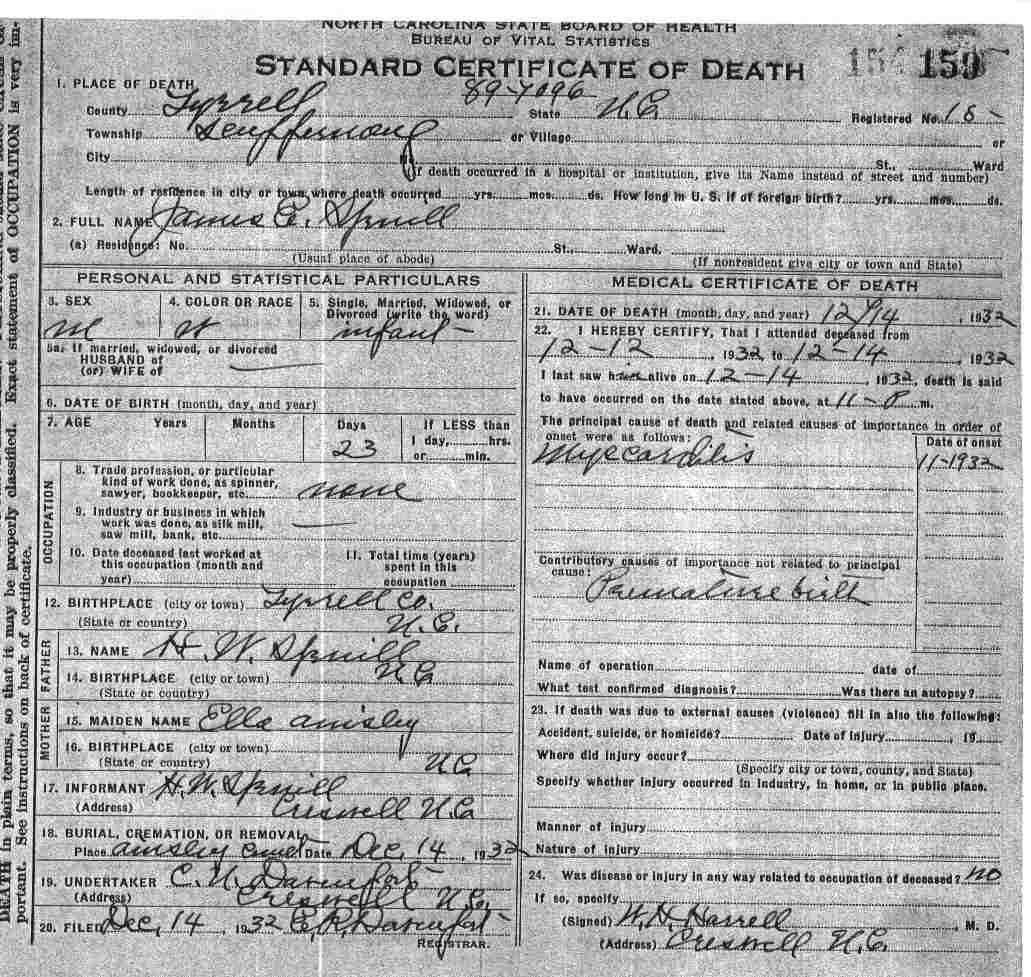 NORTH CAROLINA STATE BOARD OF HEALTH
BUREAU OF VITAL STATISTICS
STANDARD CERTIFICATE OF DEATH 159
1. PLACE OF DEATH 89-7096
County Tyrrell State N.C. Registered No. 18 -
Township Scuppernong or Village or
City St., Ward
(If death occurred in a hospital or institution, give its Name instead of street and number)
Length of residence in city or town where death occurred yrs. mos. ds. How long in U. S. if of foreign birth? yrs. mos. ds.
2. FULL NAME James E. Spruill
(a) Residence: No. St. Ward.
(Usual place of abode) (If nonresident give city or town and State)
PERSONAL AND STATISTICAL PARTICULARS
3. SEX 4. COLOR OR RACE 5. Single, Married, Widowed, or Divorced (write the word)
M W infant -
5a. If married, widowed, or divorced
HUSBAND of
(or) WIFE of
6. DATE OF BIRTH (month, day, and year)
7. AGE Years Months Days If LESS than
23 1 day, hrs.
or min.
OCCUPATION
8. Trade profession, or particular
kind of work done, as spinner,
sawyer, bookkeeper, etc. none
9. Industry or business in which
work was done, as silk mill,
saw mill, bank, etc.
10. Date deceased last worked at
this occupation (month and
year)
11. Total time (years)
spent in this
occupation
12. BIRTHPLACE (city or town) Tyrrell Co.
(State or country) N.C.
FATHER
13. NAME H. W. Spruill
14. BIRTHPLACE (city or town) N.C
(State or country)
MOTHER
15. MAIDEN NAME Ella Ainsley
16. BIRTHPLACE (city or town)
(State or country) N.C
17. INFORMANT H. W. Spruill
(Address) Creswell N.C
18. BURIAL, CREMATION, OR REMOVAL
Place Ainsley Cemet Date Dec. 14, 1932
19. UNDERTAKER C. N. Davenport
(Address) Creswell N.C.
20. FILED Dec, 14, 1932 Davenport
REGISTRAR.
MEDICAL CERTIFICATE OF DEATH
21. DATE OF DEATH (month, day, and year) 12/14, 1932
22. I HEREBY CERTIFY, That I attended deceased from
12-12, 1932 to 12-14, 1932
I last saw him alive on 12-14, 1932, death is said
to have occurred on the date stated above, at 11-P m.
The principal cause of death and related causes of importance in order of
onset were as follows: Date of onset
Myocarditis 11-1932
Contributory causes of importance not related to principal
cause:
Premature birth
Name of operation date of
What test confirmed diagnosis? Was there an autopsy?
23. If death was due to external causes (violence) fill in also the following:
Accident, suicide, or homicide? Date of injury , 19
Where did injury occur?
(Specify city or town, county, and State)
Specify whether injury occurred in industry, in home, or in public place.
Manner of injury
Nature of injury
24. Was disease or injury in any way related to occupation of deceased? NO
If so, specify
(Signed) W. H. Harrell, M. D.
(Address) Creswell N.C.
DEATH in plain terms, so that it may be properly classified. Exact statement of OCCUPATION is very im-
portant. See instructions on back of certificate.